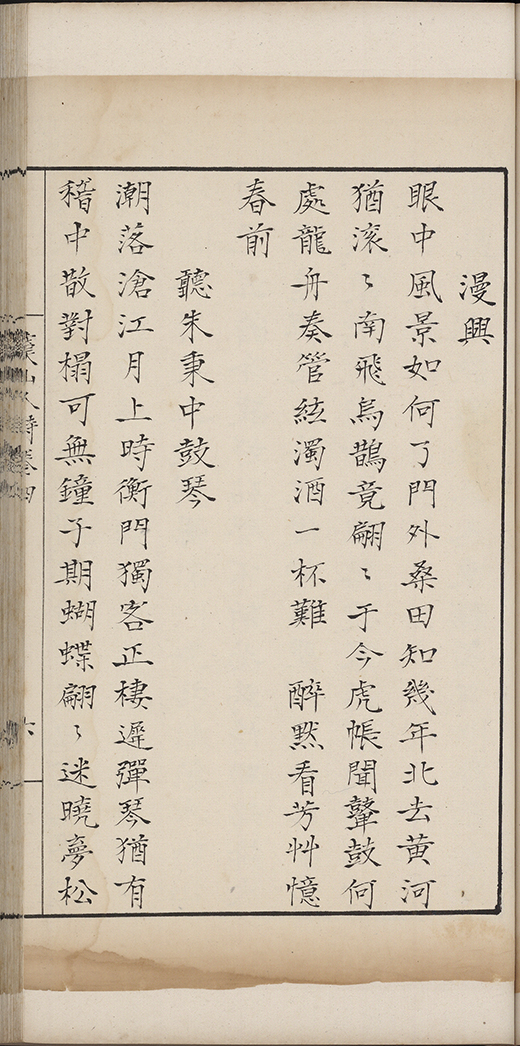 漫興
眼中風景如何了門外桑田知幾年北去黄河
猶滚〻南飛烏鵲竟翩〻于今虎帳聞鼙鼓何
處龍舟奏管絃濁酒一杯難　醉黙看芳艸憶
春前
聽朱秉中鼓琴
潮落滄江月上時衡門獨客正棲遲彈琴猶有
稽中散對榻可無鐘子期蝴蝶翩〻迷曉夢松
山人詩卷四
六